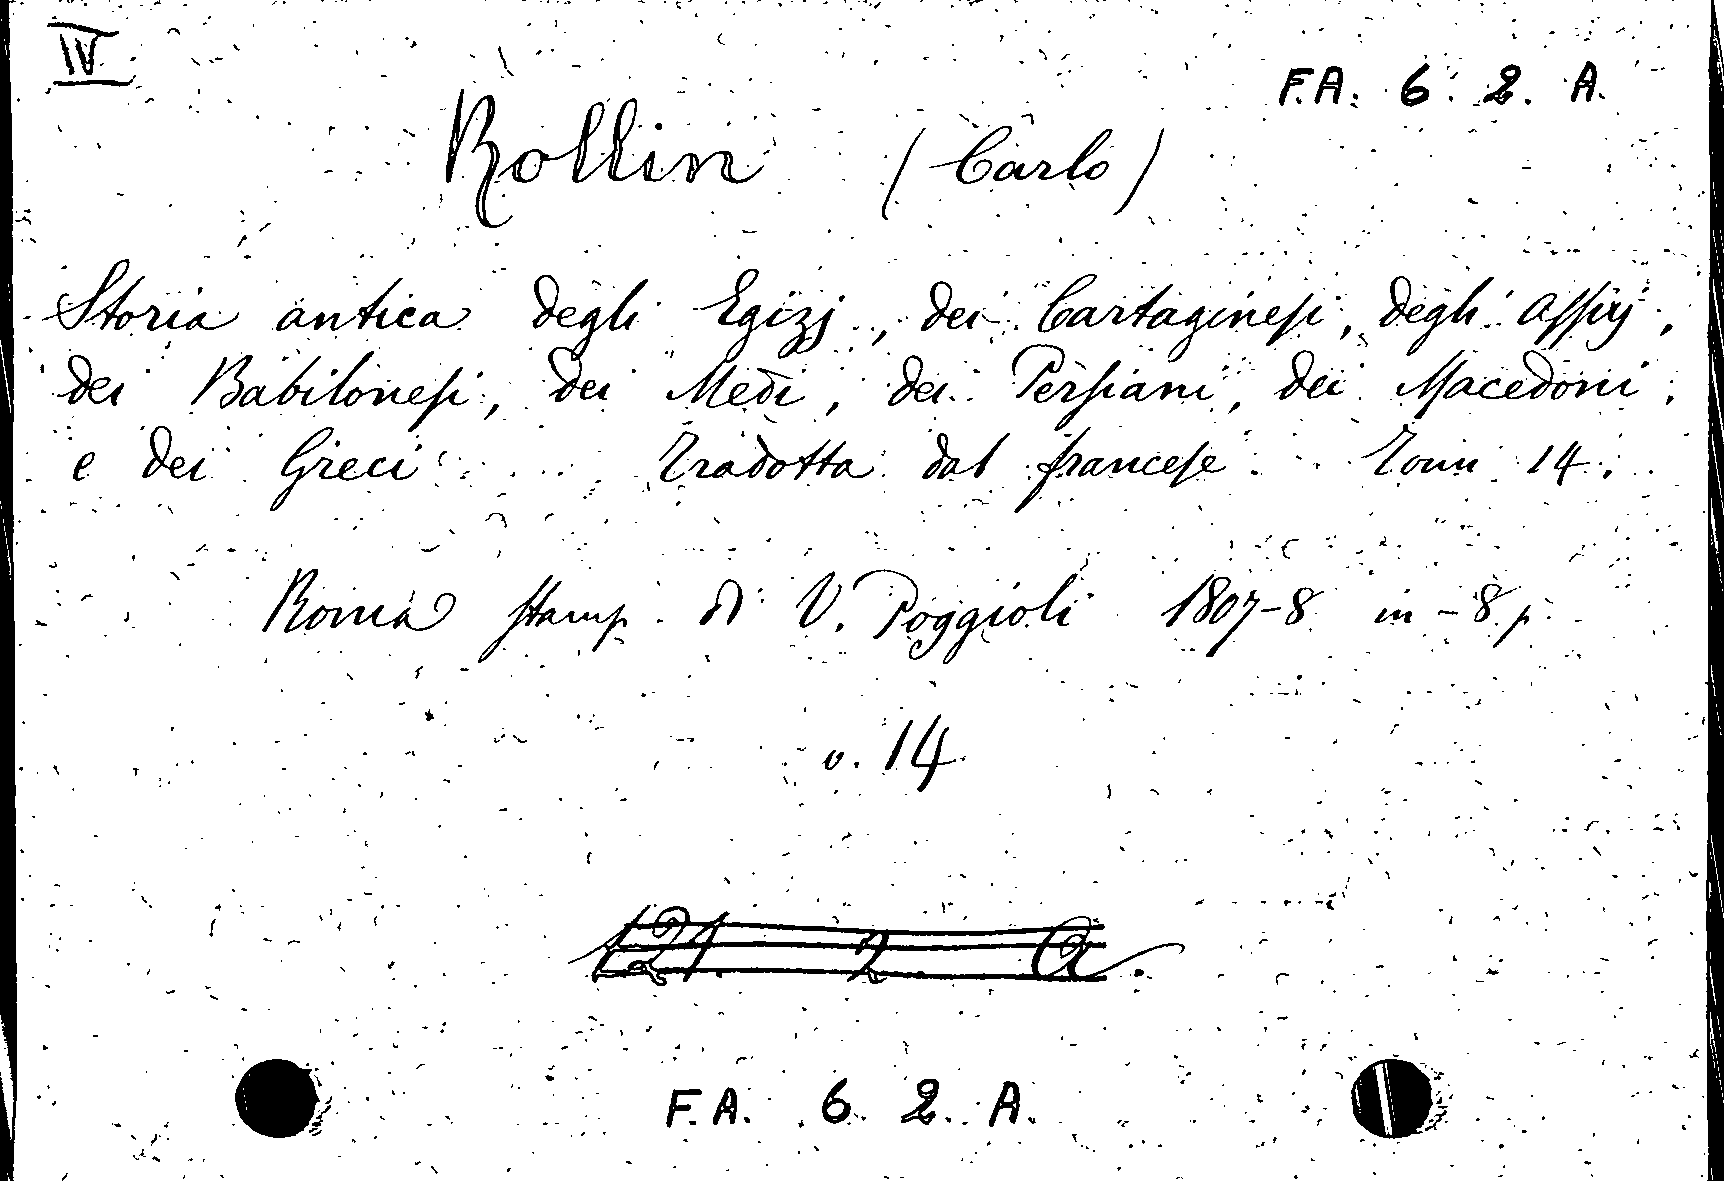 IV
F.A. 6. 2. A.
Rollin (Carlo)
Storia antica degli Egizj, dei Cartaginesi, degli Assirj,
dei Babilonesi, dei Medi, dei Persiani, dei Macedoni,
e dei Greci. Tradotta dal francese. Tomi 14.
Roma stamp. di V. Poggioli 1807-8 in-8 p.
v. 14
121. 2 A.
F.A. 6. 2. A.